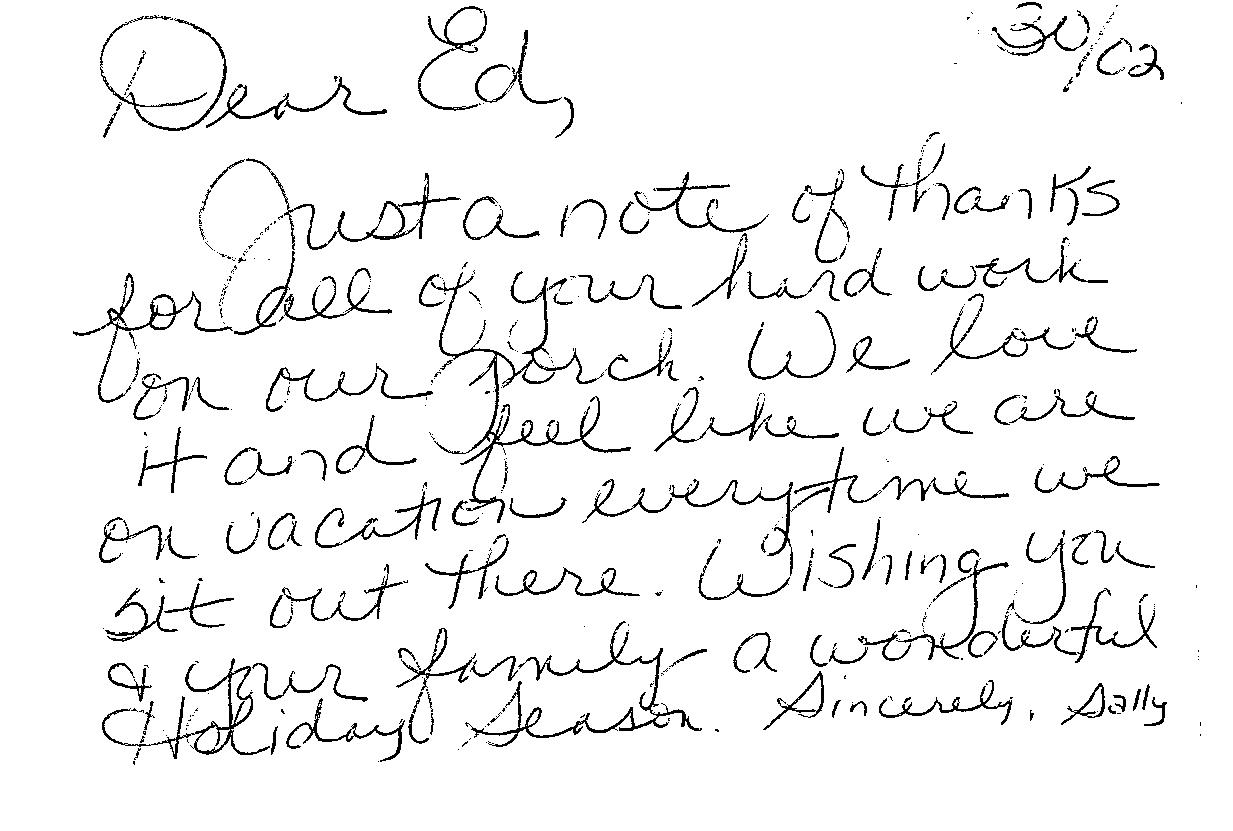 30/02
Dear Ed,
Just a note of thanks
for all of your hard work
on our porch. We love
it and feel like we are
on vacation everytime we
sit out there. Wishing you
& your family a wonderful
Holiday Season. Sincerely, Sally